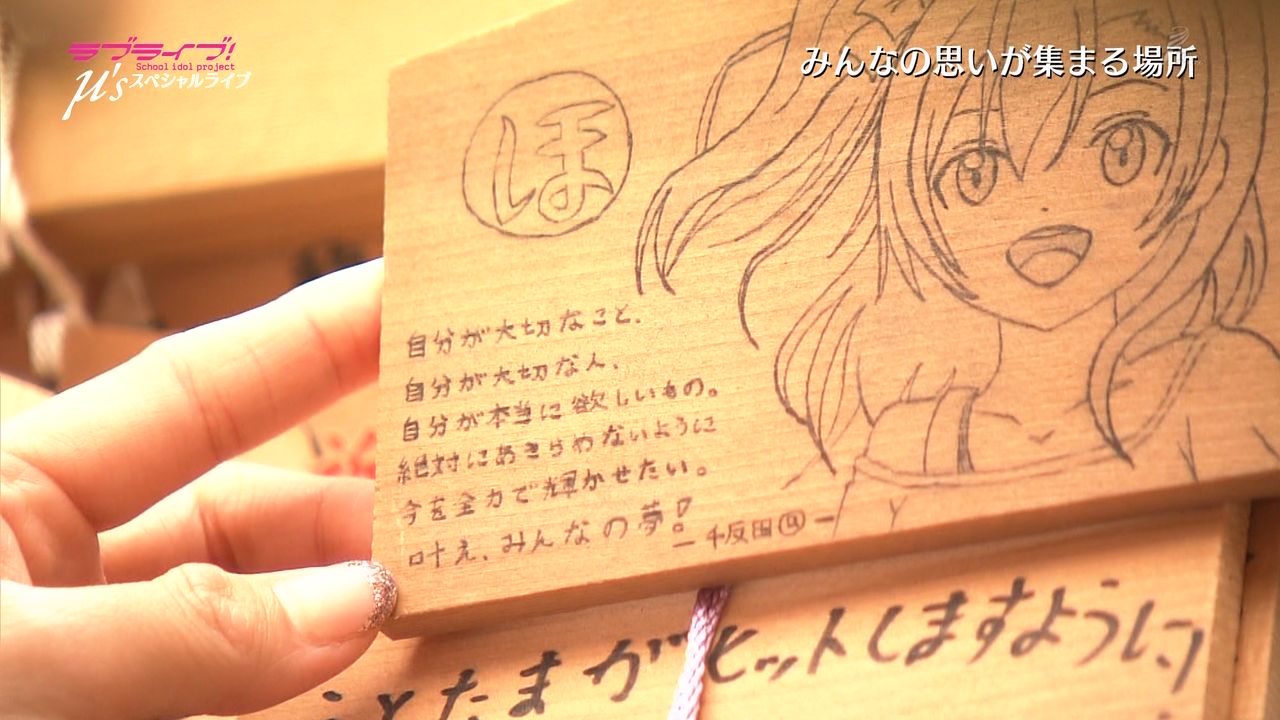 ラブライブ!
School idol project
μ'sスペシャルライブ
みんなの思いが集まる場所
ほ
自分が大切なこと、
自分が大切な人、
自分が本当に欲しいもの。
絶対にあきらめないように
今を全力で輝かせたい。
叶え、みんなの夢!
ことたまがヒットしますように